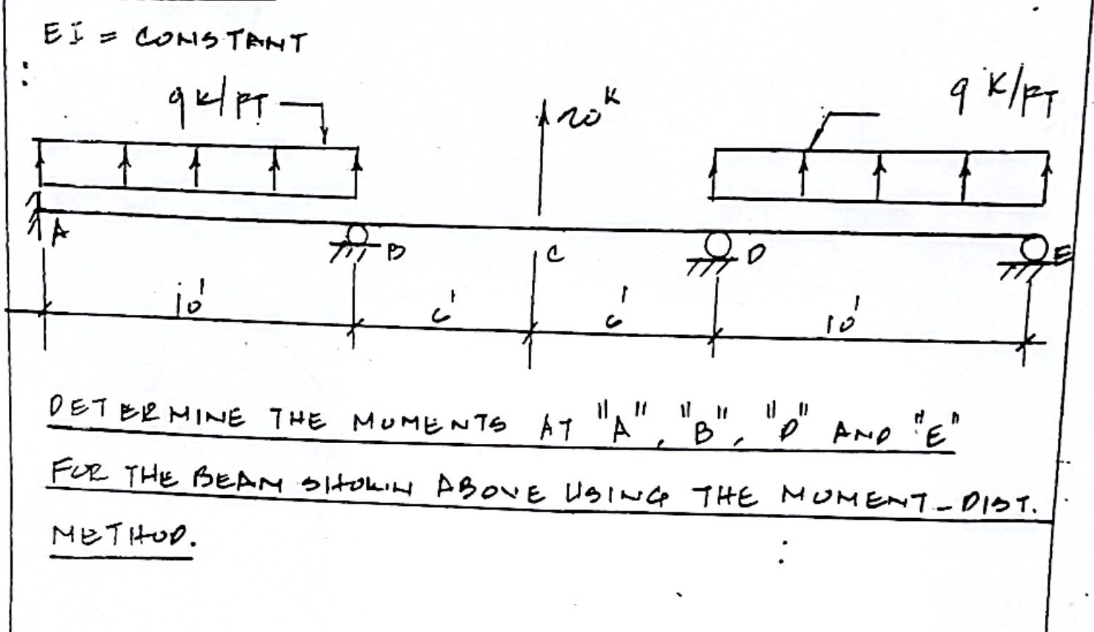 EI = CONSTANT
9 K/FT
20 K
9 K/FT
A
B
C
D
E
10'
6'
6'
10'
DETERMINE THE MOMENTS AT "A", "B", "D" AND "E"
FOR THE BEAM SHOWN ABOVE USING THE MOMENT-DIST.
METHOD.